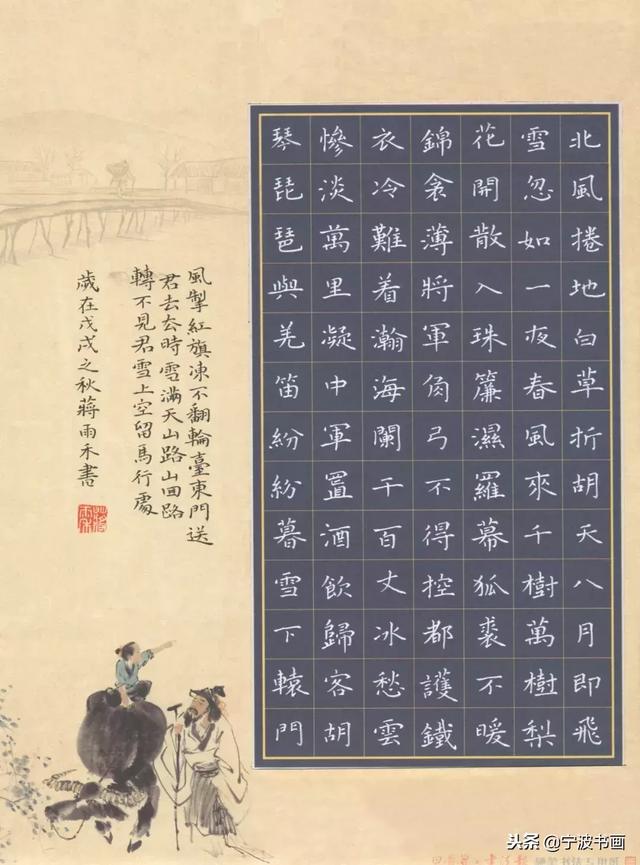 北風捲地白草折胡天八月即飛
雪忽如一夜春風來千樹萬樹梨
花開散入珠簾濕羅幕狐裘不暖
錦衾薄將軍角弓不得控都護鐵
衣冷難着瀚海闌干百丈冰愁雲
慘淡萬里凝中軍置酒飲歸客胡
琴琵琶與羌笛紛紛暮雪下轅門
風掣紅旗凍不翻輪臺東門送
君去去時雪滿天山路山回路
轉不見君雪上空留馬行處
歲在戊戌之秋蔣雨禾書
头条@宁波书画